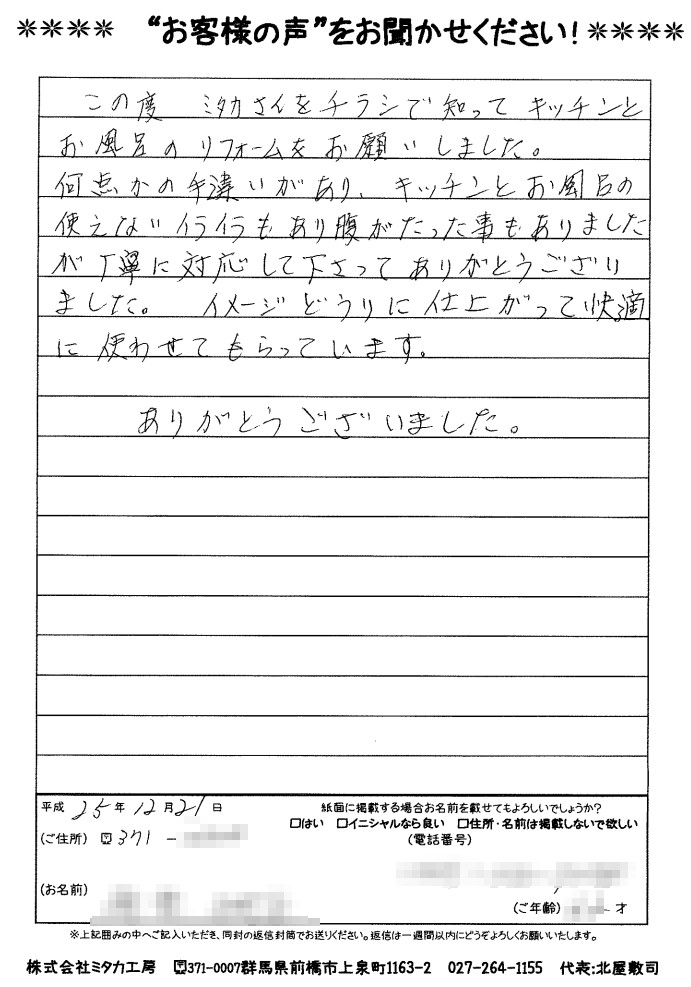 ✳✳✳✳ “お客様の声”をお聞かせください！ ✳✳✳✳
この度 ミタカさんをチラシで知って キッチンと
お風呂のリフォームをお願いしました。
何点かの手違いがあり、キッチンとお風呂の
使えないイライラもあり腹がたった事もありました
が丁寧に対応して下さってありがとうござり
ました。 イメージどうりに仕上がって快適
に使わせてもらっています。
ありがとうございました。
平成 25年 12月21日
紙面に掲載する場合お名前を載せてもよろしいでしょうか？
□はい □イニシャルなら良い □住所・名前は掲載しないで欲しい
(ご住所) 〒371-
(電話番号)
(お名前)
(ご年齢) 才
※上記囲みの中へご記入いただき、同封の返信封筒でお送りください。返信は一週間以内にどうぞよろしくお願いいたします。
株式会社ミタカ工房 〒371-0007群馬県前橋市上泉町1163-2 027-264-1155 代表:北屋敷司